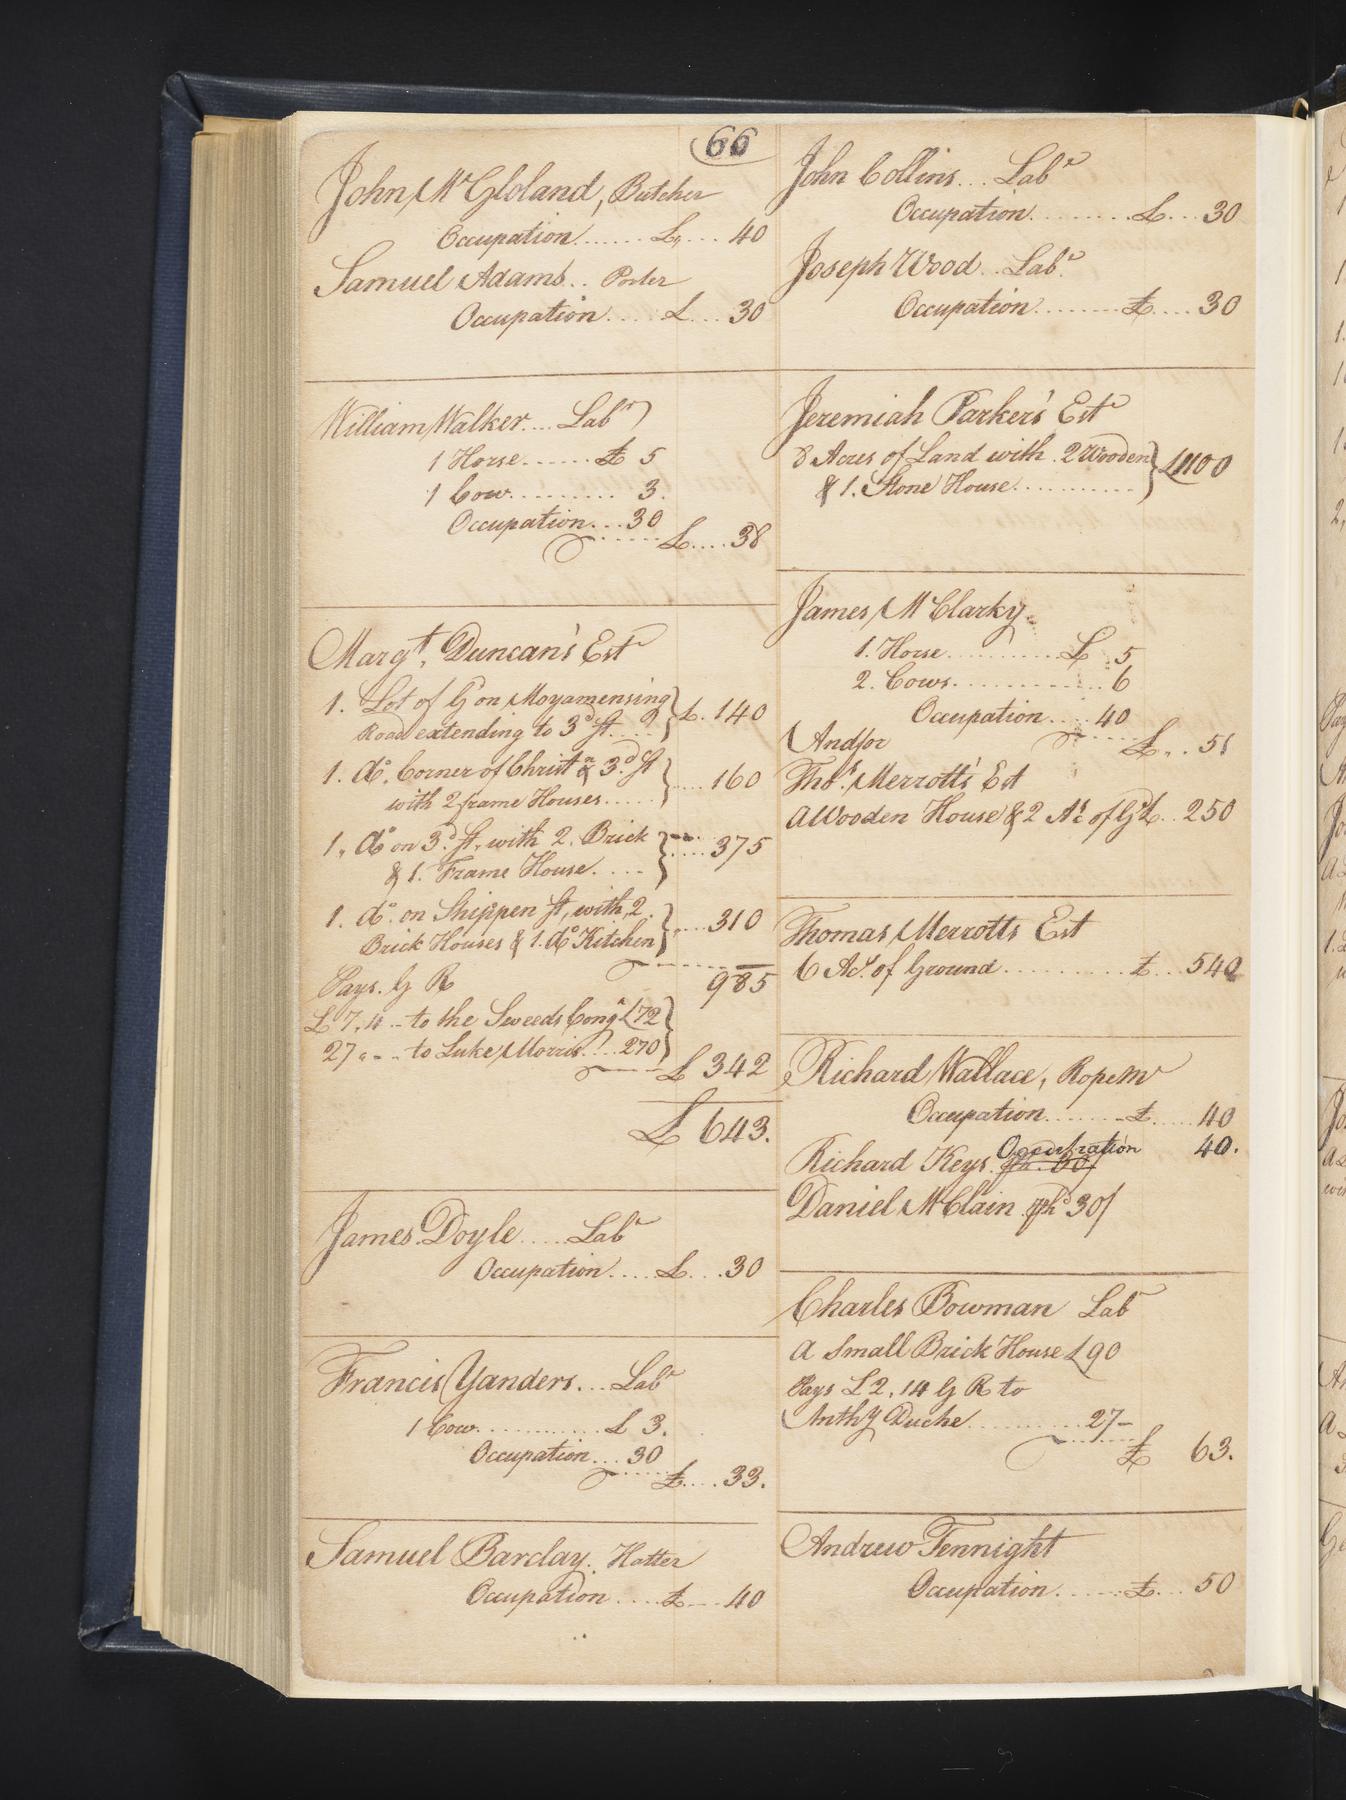 66
John McGloland, Butcher
Occupation....... £,,.... 40
Samuel Adams... Porter
Occupation..... £.... 30
William Walker.... Labr
1 Horse....... £ 5
1 Cow.......... 3.
Occupation... 30
£.... 38
Margt. Duncan's Est
1. Lot of Gd on Moyamensing
Road extending to 3d St.... } £. 140
1. do. Corner of Christn & 3d. St
with 2 frame Houses..... } .... 160
1, do on 3d. St, with 2. Brick
& 1. Frame House..... } .... 375
1. do. on Shippen St, with, 2.
Brick Houses & 1. do Kitchen } .... 310
985
Pays. G R
£7, 4 -- to the Sweeds Congn £72
27 " - - to Luke Morris... 270 }
£ 342
£ 643.
James Doyle..... Labr
Occupation.... £... 30
Francis Yanders... Labr
1 Cow............. £ 3.
Occupation... 30
£.... 33.
Samuel Barclay. Hatter
Occupation.... £... 40
John Collins... Labr
Occupation......... £... 30
Joseph Wood.. Labr.
Occupation........ £.... 30
Jeremiah Parker's Est
8 Acres of Land with. 2 Wooden
& 1. Stone House........... } £1100
James McClarky.
1. Horse........... £ 5
2. Cows............. 6
Occupation.... 40
£... 51
And for
Thos. Merrott's Est
A Wooden House & 2 As. of Gd £.. 250
Thomas Merrotts Est
6 As. of Ground............ £... 540
Richard Wallace, Ropemr
Occupation........ £..... 40
Richard Keys. Occupation 40.
Daniel McClain ph 30/
Charles Bowman Labr
A Small Brick House £90
Pays £2, 14 G R to
Anthy Duche........... 27-
£ 63.
Andrew Tennight
Occupation....... £... 50